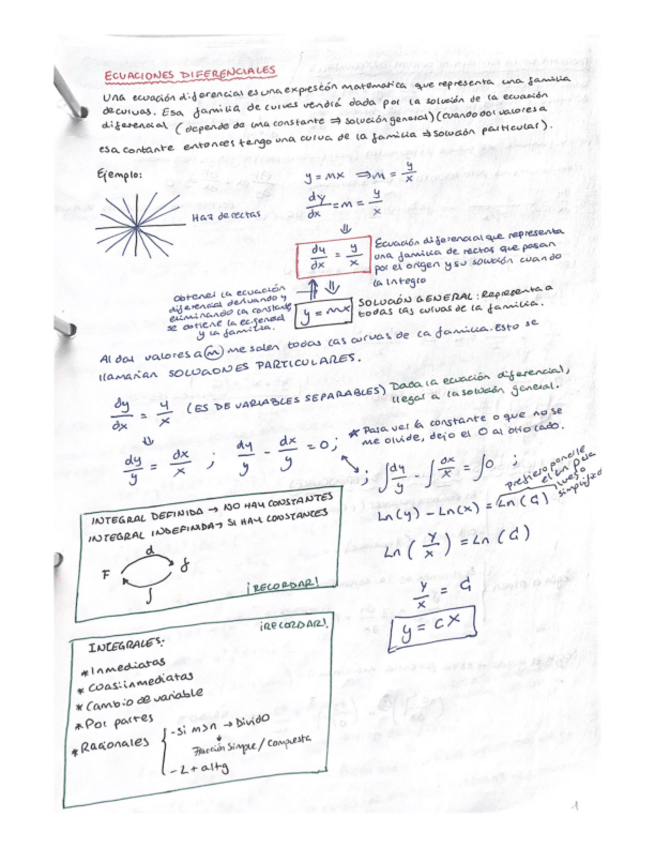 ECUACIONES DIFERENCIALES
Una ecuación diferencial es una expresión matematica que representa una familia
de curvas. Esa familia de curvas vendrá dada por la solución de la ecuación
diferencial (depende de una constante ⇒ solución general)(cuando doi valores a
esa contante entonces tengo una curva de la familia ⇒ solución particular).
Ejemplo:
Haz de rectas
y = mx ⇒ m = y/x
dy/dx = m = y/x
⇓
dy/dx = y/x
Ecuación diferencial que representa
una familia de rectas que pasan
por el origen y su solución cuando
la integro
obtener la ecuación
diferencial derivando y
eliminando la constante
se obtiene la
y la familia.
⇑ ⇓
y = mx
SOLUCIÓN GENERAL: Representa a
todas las curvas de la familia.
Al dar valores a m me salen todas las curvas de la familia. Esto se
llamarían SOLUCIONES PARTICULARES.
dy/dx = y/x (ES DE VARIABLES SEPARABLES) Dada la ecuación diferencial,
llegar a la solución general.
⇓
* Para ver la constante o que no se
me olvide, dejo el 0 al otro lado.
dy/y = dx/x ; dy/y - dx/y = 0; ; ∫dy/y - ∫dx/x = ∫0 ;
prefiero ponerle
el Ln para
luego
simplificar
Ln(y) - Ln(x) = Ln(C)
Ln(y/x) = Ln(C)
y/x = C
y = cx
INTEGRAL DEFINIDA → NO HAY CONSTANTES
INTEGRAL INDEFINIDA → SI HAY CONSTANTES
d
F f
∫
¡RECORDAR!
¡RECORDAR!
INTEGRALES:
* Inmediatas
* Cuasiinmediatas
* Cambio de variable
* Por partes
* Racionales
- si m>n → Divido
↓
Fracción simple / compuesta
- L + artg
1